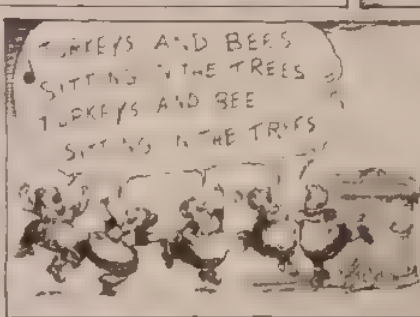 TURKEYS AND BEES
SITTING IN THE TREES
TURKEYS AND BEE
SITTING IN THE TREES